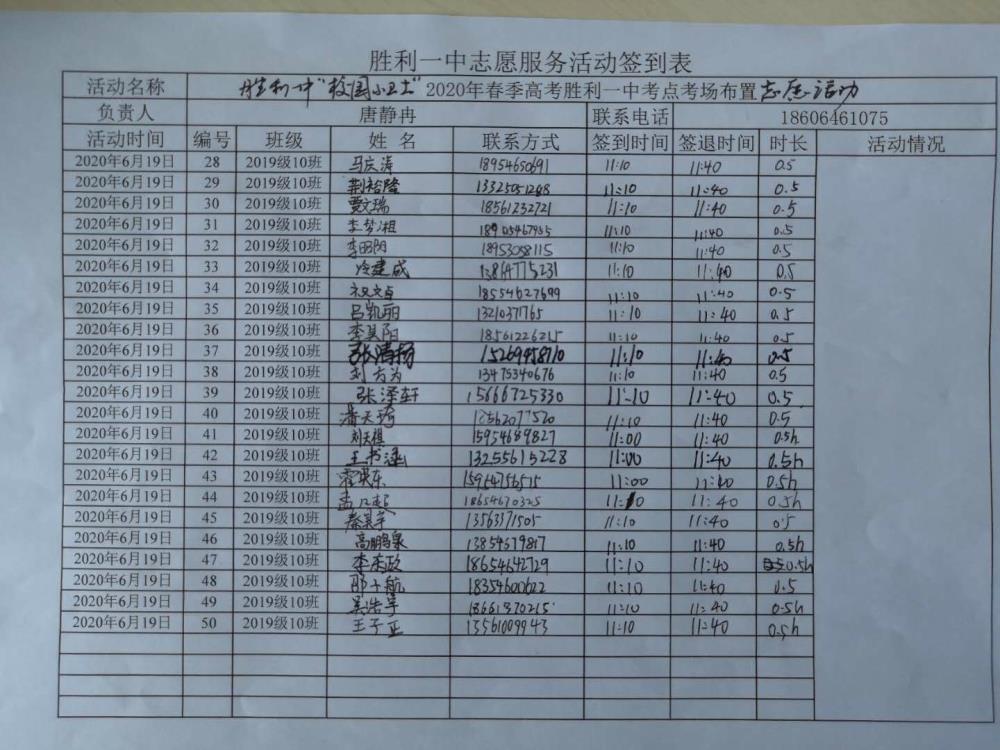 胜利一中志愿服务活动签到表
活动名称 胜利一中"校园小卫士"2020年春季高考胜利一中考点考场布置志愿活动
负责人 唐静冉 联系电话 18606461075
活动时间 编号 班级 姓名 联系方式 签到时间 签退时间 时长 活动情况
2020年6月19日 28 2019级10班 马庆涛 18954650691 11:10 11:40 0.5
2020年6月19日 29 2019级10班 荆裕隆 13325051288 11:10 11:40 0.5
2020年6月19日 30 2019级10班 贾文瑞 18561232721 11:10 11:40 0.5
2020年6月19日 31 2019级10班 李梦湘 11:10 11:40 0.5
2020年6月19日 32 2019级10班 18953058115 11:10 11:40 0.5
2020年6月19日 33 2019级10班 冷建成 13864775231 11:10 11:40 0.5
2020年6月19日 34 2019级10班 祝文卓 18554627699 11:10 11:40 0.5
2020年6月19日 35 2019级10班 吕凯丽 13210371765 11:10 11:40 0.5
2020年6月19日 36 2019级10班 李昊阳 18561226215 11:10 11:40 0.5
2020年6月19日 37 2019级10班 张清扬 15269458710 11:10 11:40 0.5
2020年6月19日 38 2019级10班 刘方为 13475340676 11:10 11:40 0.5
2020年6月19日 39 2019级10班 张泽轩 15666725330 11:10 11:40 0.5
2020年6月19日 40 2019级10班 潘天琦 18562077520 11:10 11:40 0.5
2020年6月19日 41 2019级10班 刘天祺 15954689827 11:00 11:40 0.5h
2020年6月19日 42 2019级10班 王书涵 13255615228 11:00 11:40 0.5h
2020年6月19日 43 2019级10班 15964756515 11:00 11:40 0.5h
2020年6月19日 44 2019级10班 18654670325 11:10 11:40 0.5h
2020年6月19日 45 2019级10班 秦昊宇 13563371505 11:10 11:40 0.5
2020年6月19日 46 2019级10班 高鹏泉 13854379817 11:10 11:40 0.5h
2020年6月19日 47 2019级10班 李东政 18654642729 11:10 11:40 0.5h
2020年6月19日 48 2019级10班 邢子航 18354600622 11:10 11:40 0.5
2020年6月19日 49 2019级10班 吴浩宇 18661370215 11:10 11:40 0.5h
2020年6月19日 50 2019级10班 王子正 13561009943 11:10 11:40 0.5h